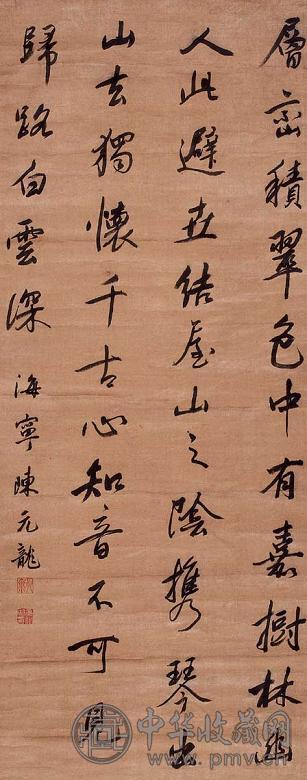 層巒積翠色中有嘉樹林幽
人此避世結屋山之陰攜琴出
山去獨懷千古心知音不可
歸路白雲深
海寧陳元龍
中华收藏网
www.pmv.cn